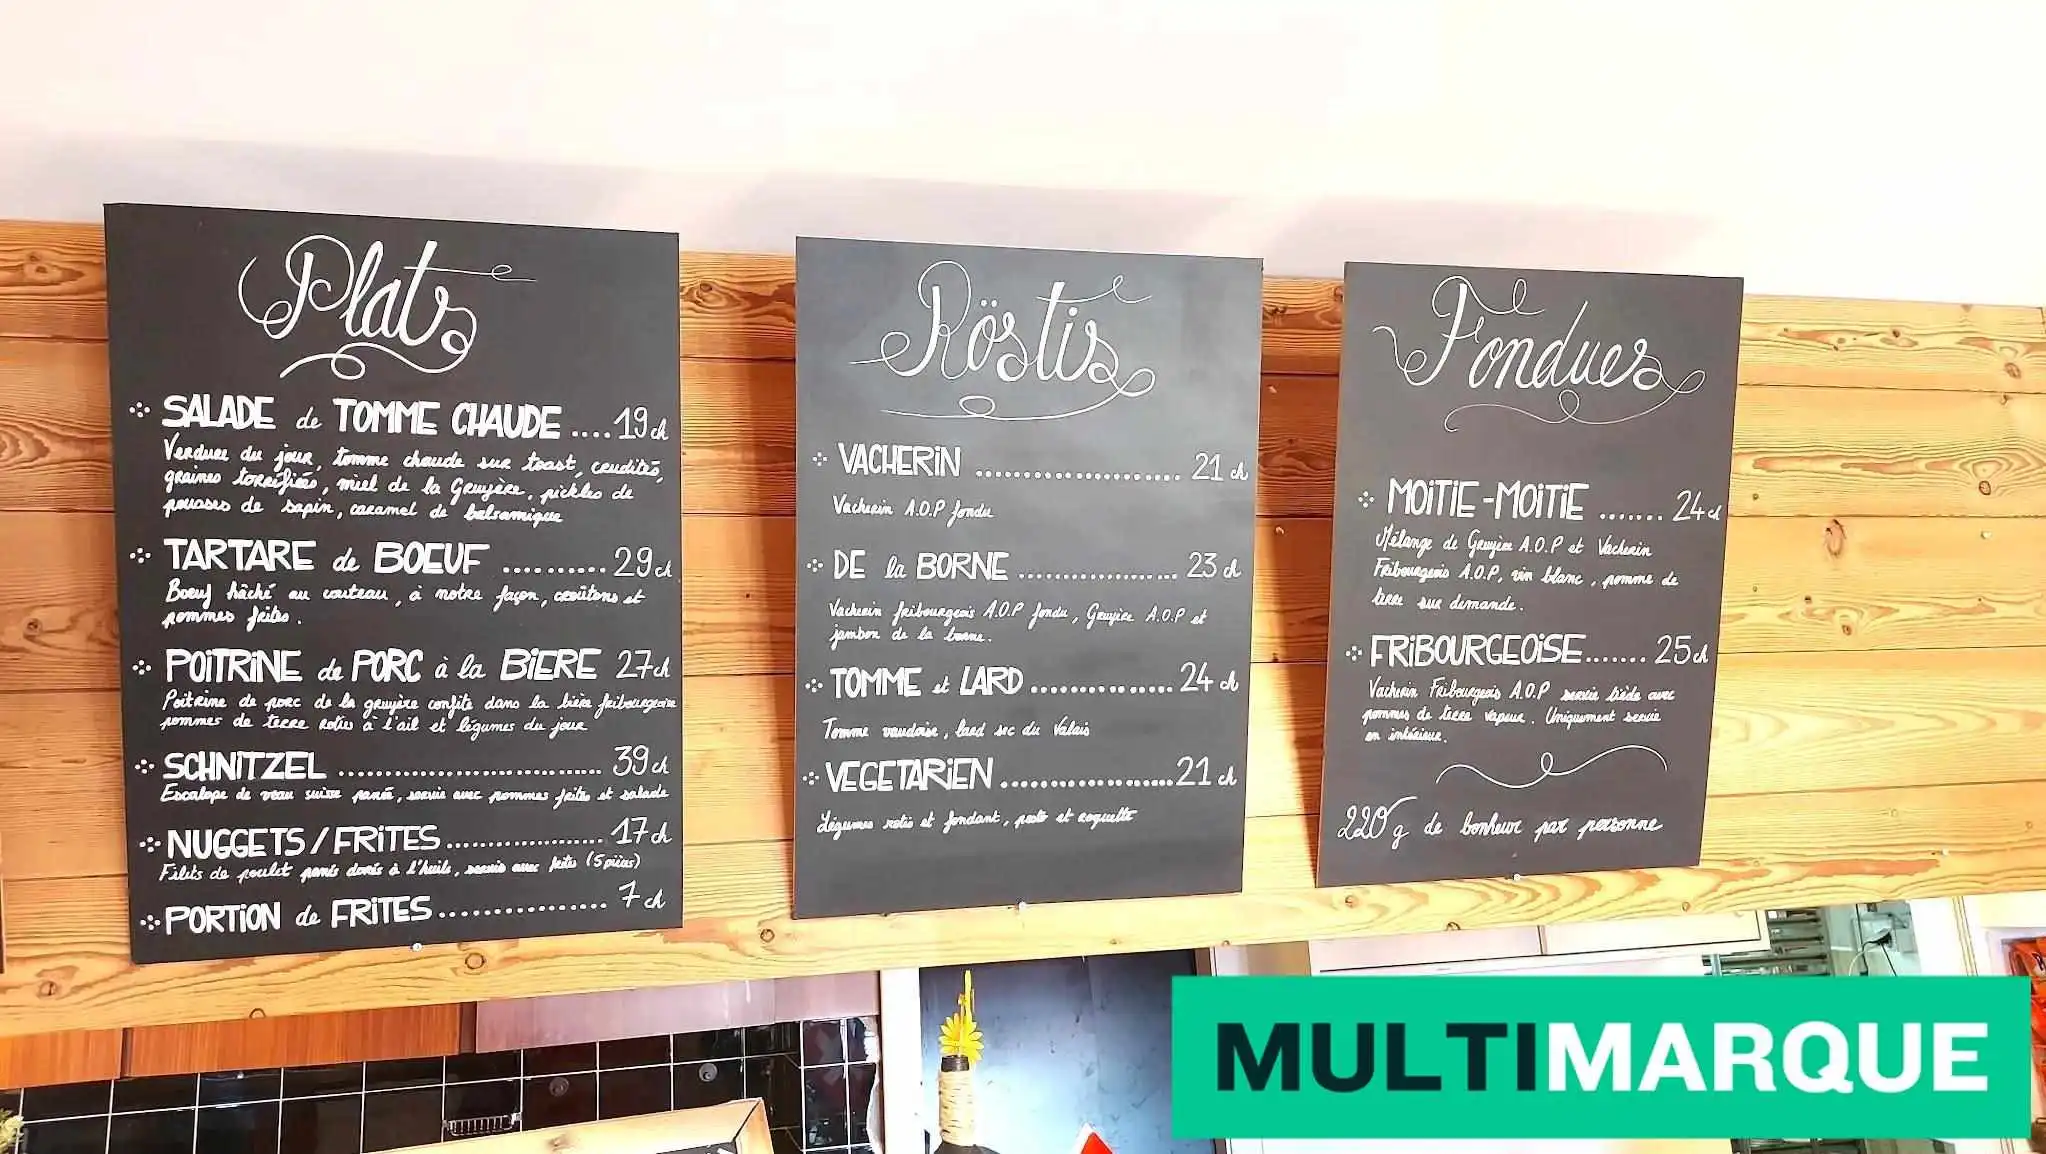 Plats
SALADE de TOMME CHAUDE ....19 ch
Verdure du jour, tomme chaude sur toast, crudités,
graines torréfiées, miel de la Gruyère, pickles de
pousses de sapin, caramel de balsamique
TARTARE de BOEUF ..........29 ch
Boeuf hâché au couteau, à notre façon, croûtons et
pommes frites.
POITRINE de PORC à la BIERE 27 ch
Poitrine de porc de la gruyère confite dans la bière fribourgeoise
pommes de terre roties à l'ail et légumes du jour
SCHNITZEL .............................. 39 ch
Escalope de veau suisse panée, servie avec pommes frites et salade
NUGGETS / FRITES .................. 17 ch
Filets de poulet panés dorés à l'huile, servis avec frites (5 pièces)
PORTION de FRITES .................. 7 ch
Röstis
VACHERIN ....................... 21 ch
Vacherin A.O.P fondu
DE la BORNE .................. 23 ch
Vacherin fribourgeois A.O.P fondu, Gruyère A.O.P et
jambon de la borne.
TOMME et LARD ............... 24 ch
Tomme vaudoise, lard sec du Valais
VEGETARIEN ..................21 ch
Légumes rotis et fondant, pesto et roquette
Fondues
MOITIE-MOITIE ....... 24 ch
Mélange de Gruyère A.O.P et Vacherin
Fribourgeois A.O.P, vin blanc, pomme de
terre sur demande.
FRIBOURGEOISE....... 25 ch
Vacherin Fribourgeois A.O.P servie tiède avec
pommes de terre vapeur. Uniquement servie
en intérieur.
220g de bonheur par personne
MULTIMARQUE